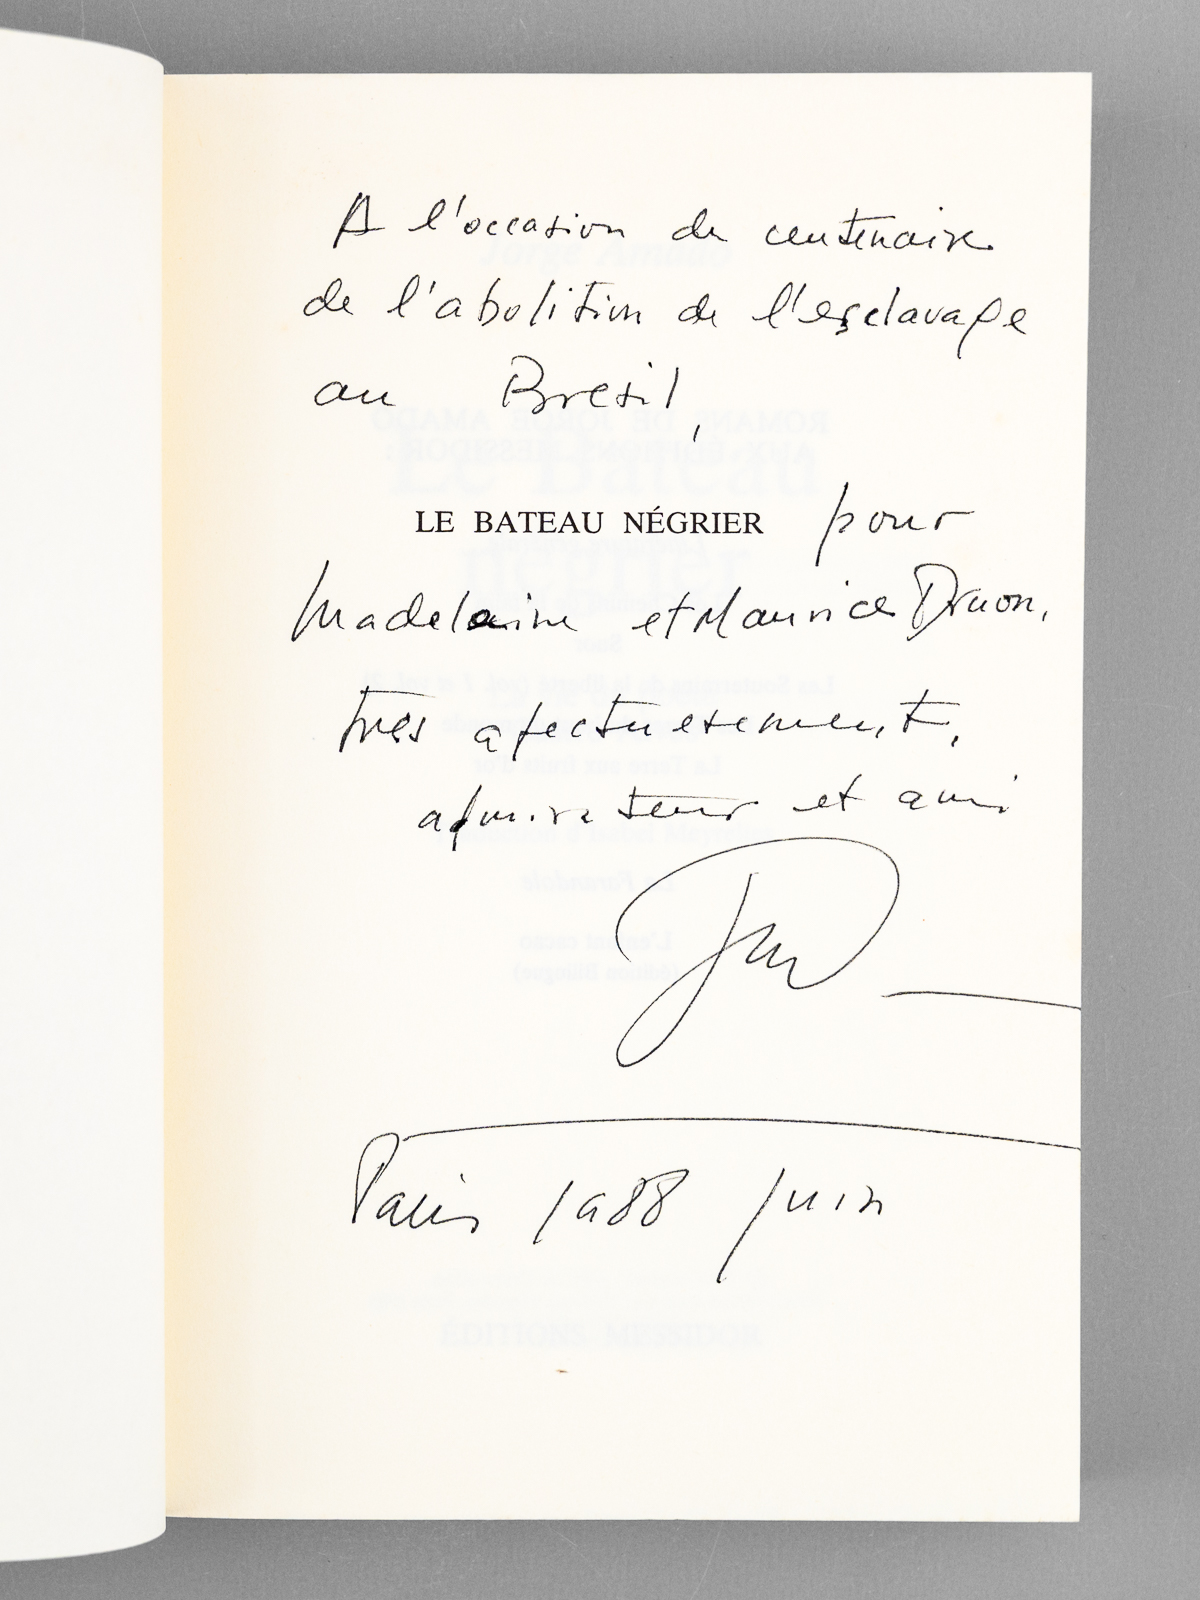 A l'occasion du centenaire
de l'abolition de l'esclavage
au Bresil,
LE BATEAU NÉGRIER pour
Madeleine et Maurice Druon,
très afectuesement,
admirateur et ami
Paris 1988 juin